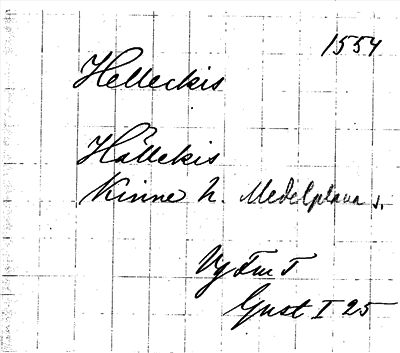 1554
Helleckis
Hällekis
Kinne h. Medelplana s.
Vg Fm T
Gust I 25